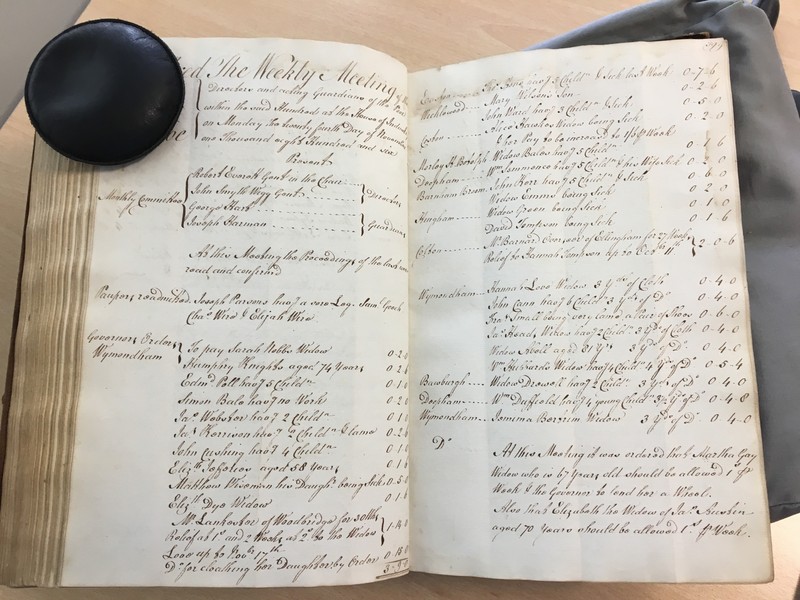 The Weekly Meeting of the
Directors and acting Guardians of the Poor
within the said Hundreds at the House of Industry
on Monday the twenty fourth Day of November
one Thousand eight Hundred and six
Present
Robert Everatt Gent in the Chair
John Smyth Wigg Gent
Monthly Committee
George Hart
Directors
Joseph Harman
Guardians
At this Meeting the Proceedings of the last were
read and confirmed
Paupers readmitted Joseph Parsons havg a sore Leg. Saml Gooch
Chas Wire & Elijah Wire
Governors Orders
Wymondham
To pay Sarah Nobbs Widow
0-2-
Humphry Knights aged 74 Years 0-2-6
Edmd Poll havg 5 Childn 0-1-6
Simon Bale havg no Work 0-2-6
Jas Webster havg 2 Childn 0-1-
Jas Kerrison havg 2 Childn & lame 0-2-6
John Cushing havg 4 Childn 0-1-6
Elizth aged 58 Years 0-1-6
Matthew Wiseman his Daughr being Sick 0-5-0
Elizth Dye Widow 0-1-6
Mr Lankester of Woodbridge for 30 Wks
Relief at 1s and 2 Weeks at 2s to the Widow 1-14-0
Load up to Novr 17th
Do for cloathing her Daughter by Order 0-15-0
3-9-0
Thos King havg 5 Childn & Sick last Week 0-7-6
Hecklowood Mary Wilsons Son 0-2-6
John Ward havg 5 Childn & Sick 0-5-0
Coston Alice Barlos Widow being Sick 0-2-0
& her Pay to be increasd to 1/6 pr Week
Morley St Botolph Widow Bales havg 5 Childn 0-1-6
Deopham Wm Lammonce havg 5 Childn & his Wife Sick 0-2-0
Barnham Broom John Kerr havg 5 Childn & Sick 0-6-0
Widow Emms being Sick 0-2-0
Hingham Widow Green being Sick 0-1-0
David Tompson being Sick 0-1-6
Colton Mr Barnard Overseer of Ellingham for 27 Weeks
Relief to Hannah Tompson up to Octr 11th 2-0-6
Wymondham Hannah Love Widow 3 Yds of Cloth 0-4-0
John Cann havg 6 Childn 3 Yds of Do 0-4-0
Fras Small being very lame a Pair of Shoes 0-6-0
Jas Head, Widow havg 2 Childn 3 Yds of Cloth 0-4-0
Widow Abell aged 81 Yrs 3 Yds of Do 0-4-0
Wm Hubbards Widow havg 4 Childn 4 Yds of Do 0-5-4
Bawburgh Widow Drewell havg 2 Childn 3 Yds of Do 0-4-0
Deopham Wm Duffield havg 4 young Childn 3½ Yds of Do 0-4-8
Wymondham Jemima Bertrim Widow 3 Yds of Do 0-4-0
Do At this Meeting it was ordered that Martha Gay
Widow who is 67 Years old should be allowed 1s pr
Week & the Governor to lend her a Wheel.
Also that Elizabeth the Widow of Jas
aged 70 Years should be allowed 1s pr Week.